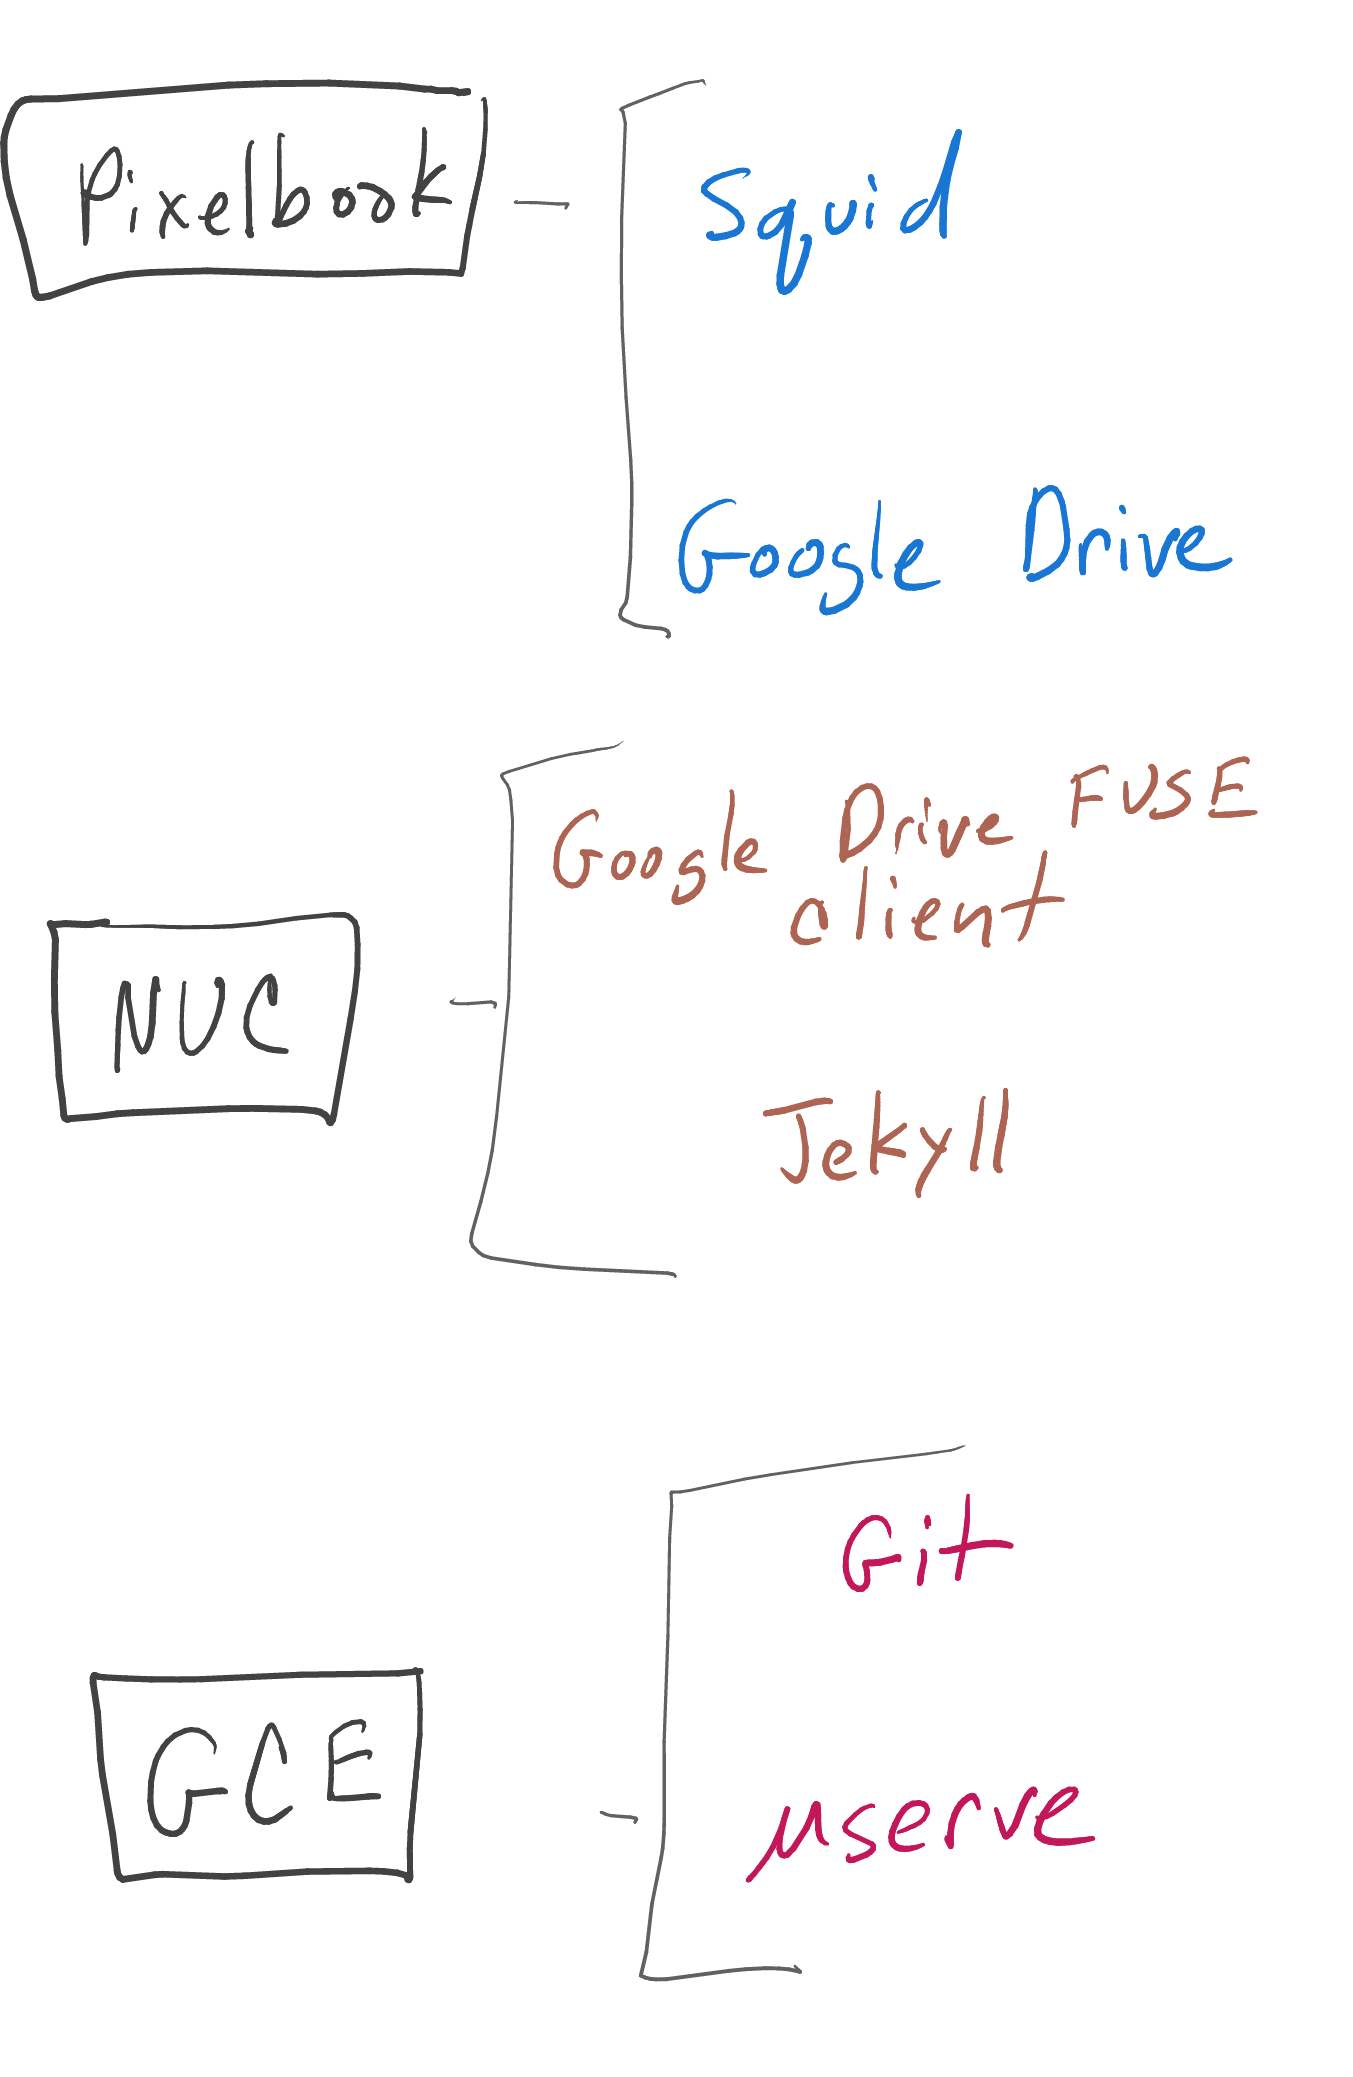 Pixelbook
Squid
Google Drive
Google Drive FUSE
client
NUC
Jekyll
Git
GCE
µserve